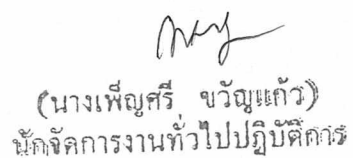 (นางเพ็ญศรี ขวัญแก้ว)
นักจัดการงานทั่วไปปฏิบัติการ